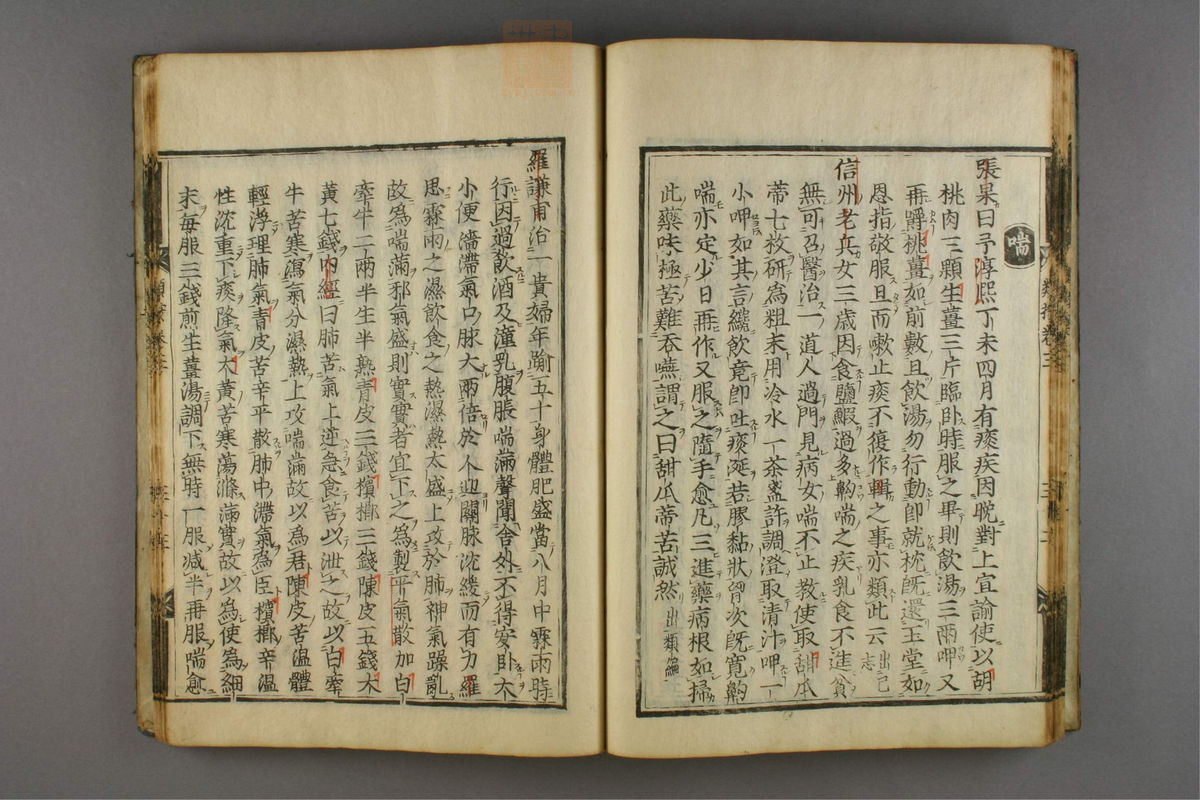 喘
張杲曰予淳熙丁未四月有痰疾因晩對上宜諭使以胡
桃肉三顆生薑三片臨卧時服之畢則飲湯三兩呷又
再嚼桃薑如前數且飲湯勿行動即就枕既還玉堂如
恩指敬服旦而嗽止痰不復作輯之事亦類此云出己志
信州老兵女三歳因食鹽鰕過多齁喘之疾乳食不進貧
無可召醫治一道人過門見病女喘不止教使取甜瓜
蒂七枚研為粗末用冷水一茶盞許調澄取清汁呷一
小呷如其言纔飲竟即吐痰涎若膠黏狀胷次既寛齁
喘亦定少日再作又服之隨手愈凡三進藥病根如掃
此藥味極苦難吞嚥謂之曰甜瓜蒂苦誠然出類編
羅謙甫治一貴婦年踰五十身體肥盛當八月中霖雨時
行因過飲酒及潼乳腹脹喘滿聲聞舎外不得安卧大
小便濇滯氣口脉大兩倍於人迎關脉沈緩而有力羅
思霖雨之濕飲食之熱濕熱太盛上攻於肺神氣躁亂
故為喘滿邪氣盛則實實者宜下之為製平氣散加白
牽牛二兩半生半熟青皮三錢檳榔三錢陳皮五錢大
黄七錢内經曰肺苦氣上逆急食苦以泄之故以白牽
牛苦寒瀉氣分濕熱上攻喘滿故以為君陳皮苦温體
輕浮理肺氣青皮苦辛平散肺中滯氣為臣檳榔辛温
性沈重下痰降氣大黄苦寒蕩滌滿實故以為使為細
末每服三錢煎生薑湯調下無時一服减半再服喘愈